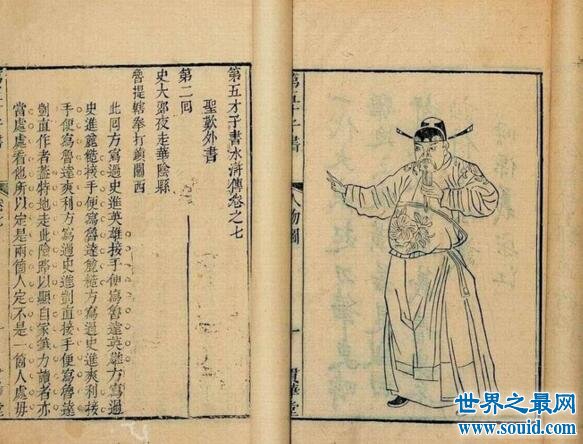 第五才子書
人物圖
一
貫華堂
第五才子書水滸傳卷之七
聖歎外書
第二回
史大郎夜走華陰縣
魯提轄拳打鎮關西
此回方寫過史進英雄接手便寫魯達英雄方寫過
史進麄糙接手便寫魯達麄糙方寫過史進爽利接
手便寫魯達爽利方寫過史進剴直接手便寫魯達
剴直作者蓋特地走此險路以顯自家筆力讀者亦
當處處看他所以定是兩箇人定不是一箇人處毋
世界之最网
www.souid.com